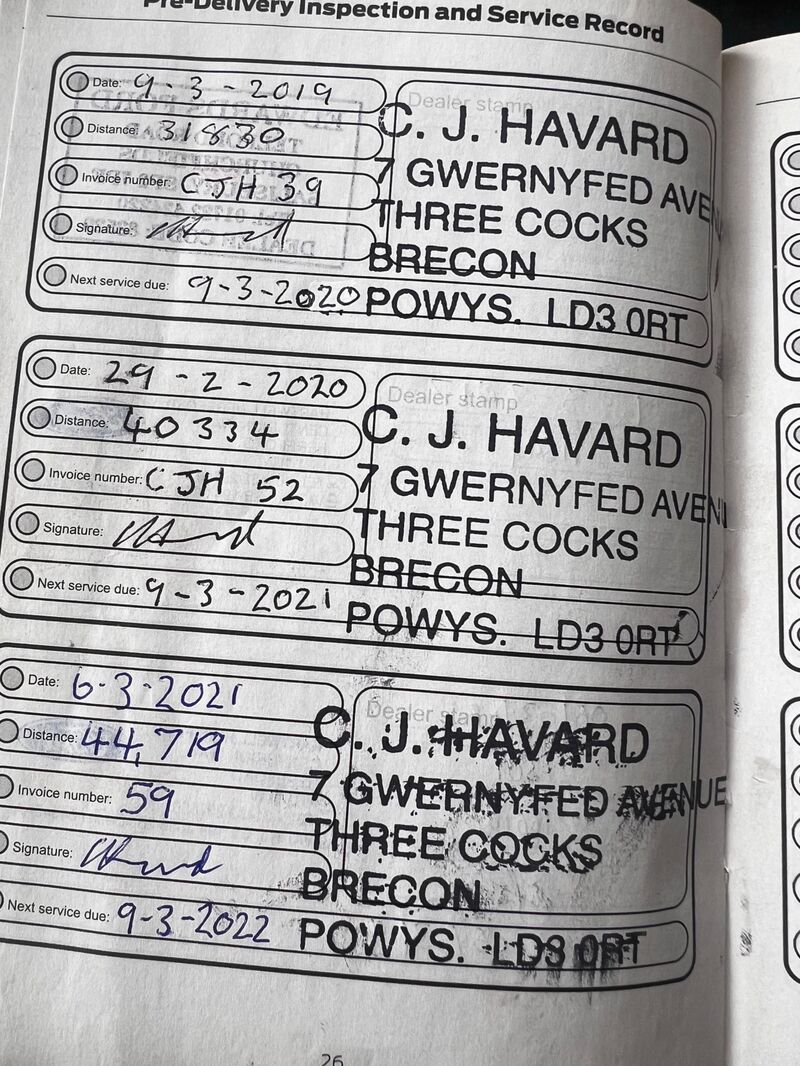 Pre-Delivery Inspection and Service Record
Date: 9-3-2019
Dealer stamp
Distance: 31830
C. J. HAVARD
Invoice number: CJH 39
7 GWERNYFED AVENUE
Signature:
THREE COCKS
BRECON
Next service due: 9-3-2020
POWYS. LD3 0RT
Date: 29-2-2020
Dealer stamp
Distance: 40334
C. J. HAVARD
Invoice number: CJH 52
7 GWERNYFED AVENU
Signature:
THREE COCKS
BRECON
Next service due: 9-3-2021
POWYS. LD3 0RT
Date: 6-3-2021
Dealer stamp
Distance: 44,719
C. J. HAVARD
Invoice number: 59
7 GWERNYFED AVENUE
Signature:
THREE COCKS
BRECON
Next service due: 9-3-2022
POWYS. LD3 0RT
26